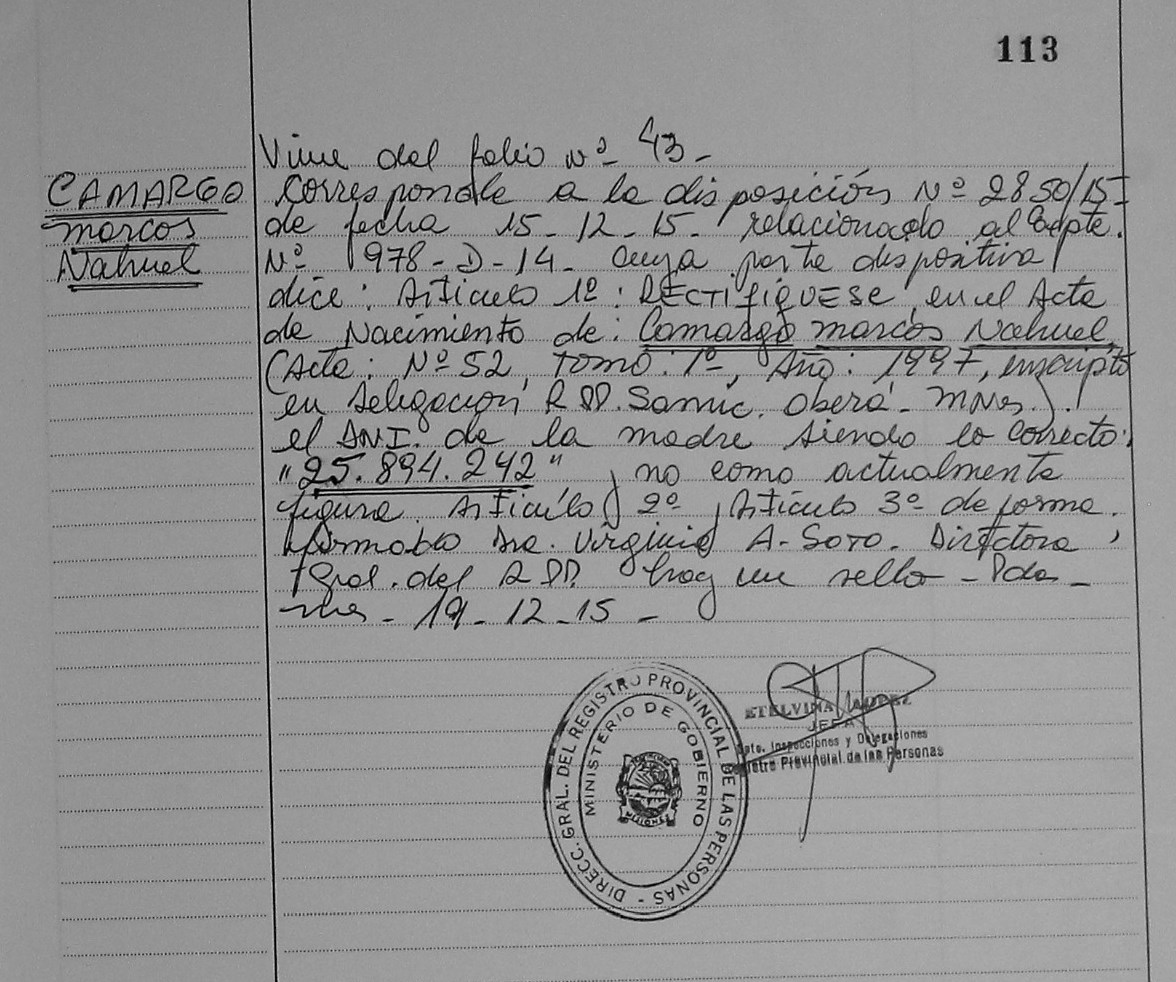 113
CAMARGO
Marcos
Nahuel
Viene del folio Nº 43 -
Corresponde a la disposición Nº 2850/15-
de fecha 15-12-15- relacionado al Expte.
Nº 1978-D-14- cuya parte dispositiva
dice: Artículo 1º: RECTIFIQUESE en el Acta
de Nacimiento de: Camargo Marcos Nahuel,
(Acta: Nº 52, Tomo: 1º, Año: 1997, inscripto
en Delegación R.PP. Samic. Oberá - Mnes.)
el DNI. de la madre siendo lo correcto:
"25.894.242" y no como actualmente
figura. Artículo 2º y Artículo 3º de forma.
Firmado Dra. Virginia A. Soto. Directora
Gral. del R.PP. hay un sello - Pdas -
Mnes - 19-12-15 -
DIRECC. GRAL. DEL REGISTRO PROVINCIAL DE LAS PERSONAS -
MINISTERIO DE GOBIERNO
MISIONES
ETELVINA
JEFA
Dpto. Inspecciones y Delegaciones
Registro Provincial de las Personas